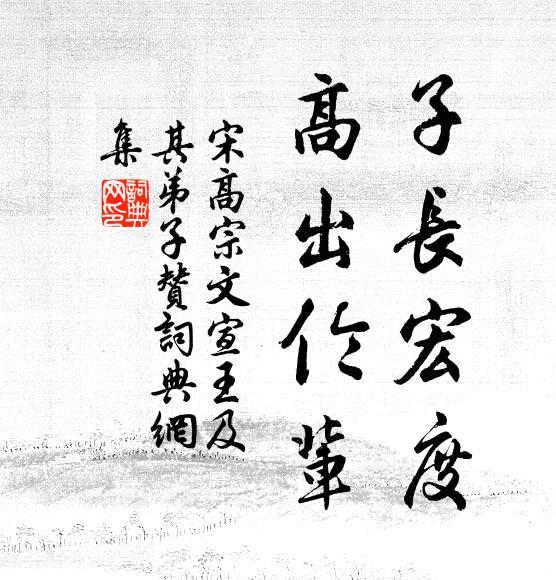 子長宏度
高出倫輩
宋高宗文宣王及
其弟子贊詞典網
集
詞典
网印